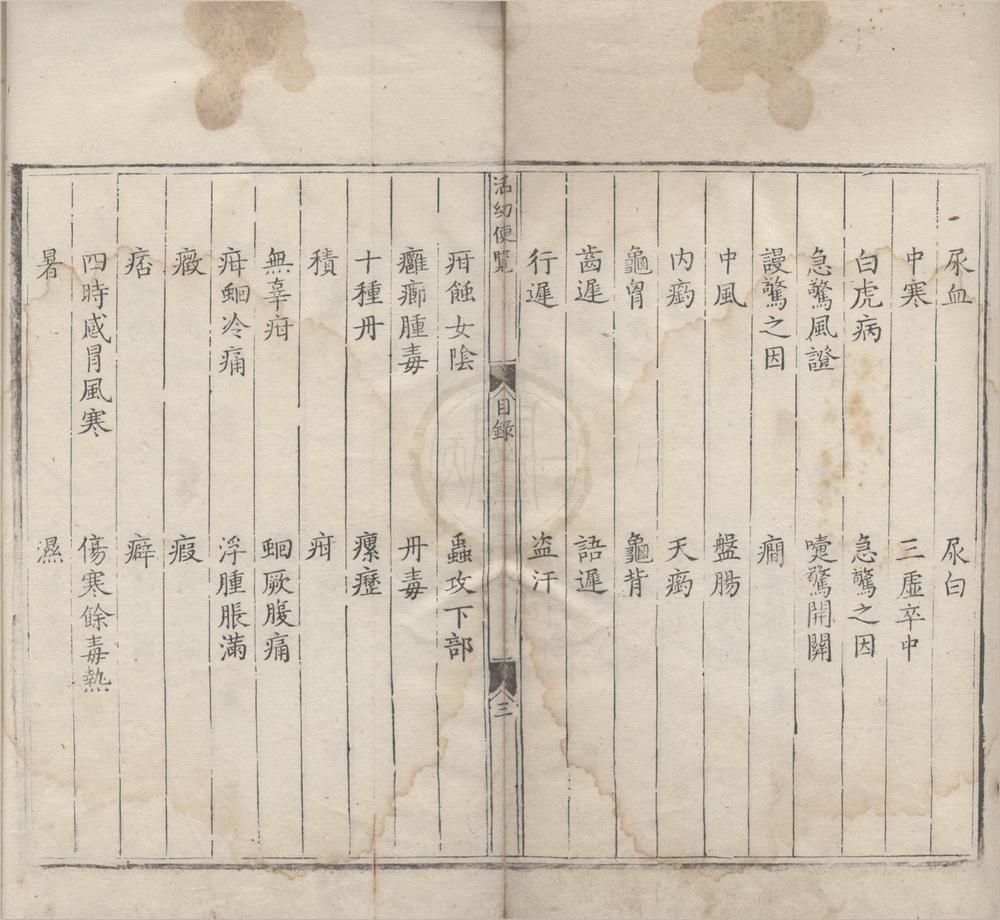 尿血 尿白
中寒 三虛卒中
白虎病 急驚之因
急驚風證 嚏驚開關
謾驚之因 癇
中風 盤腸
內瘹 天瘹
龜胷 龜背
齒遲 語遲
行遲 盗汗
活幼便覽 目錄 三
疳蝕女陰 䘌攻下部
癰癤腫毒 丹毒
十種丹 瘰癧
積 疳
無辜疳 蛔厥腹痛
疳蛔冷痛 浮腫脹滿
癥 瘕
痞 癖
四時感冒風寒 傷寒餘毒熱
暑 濕